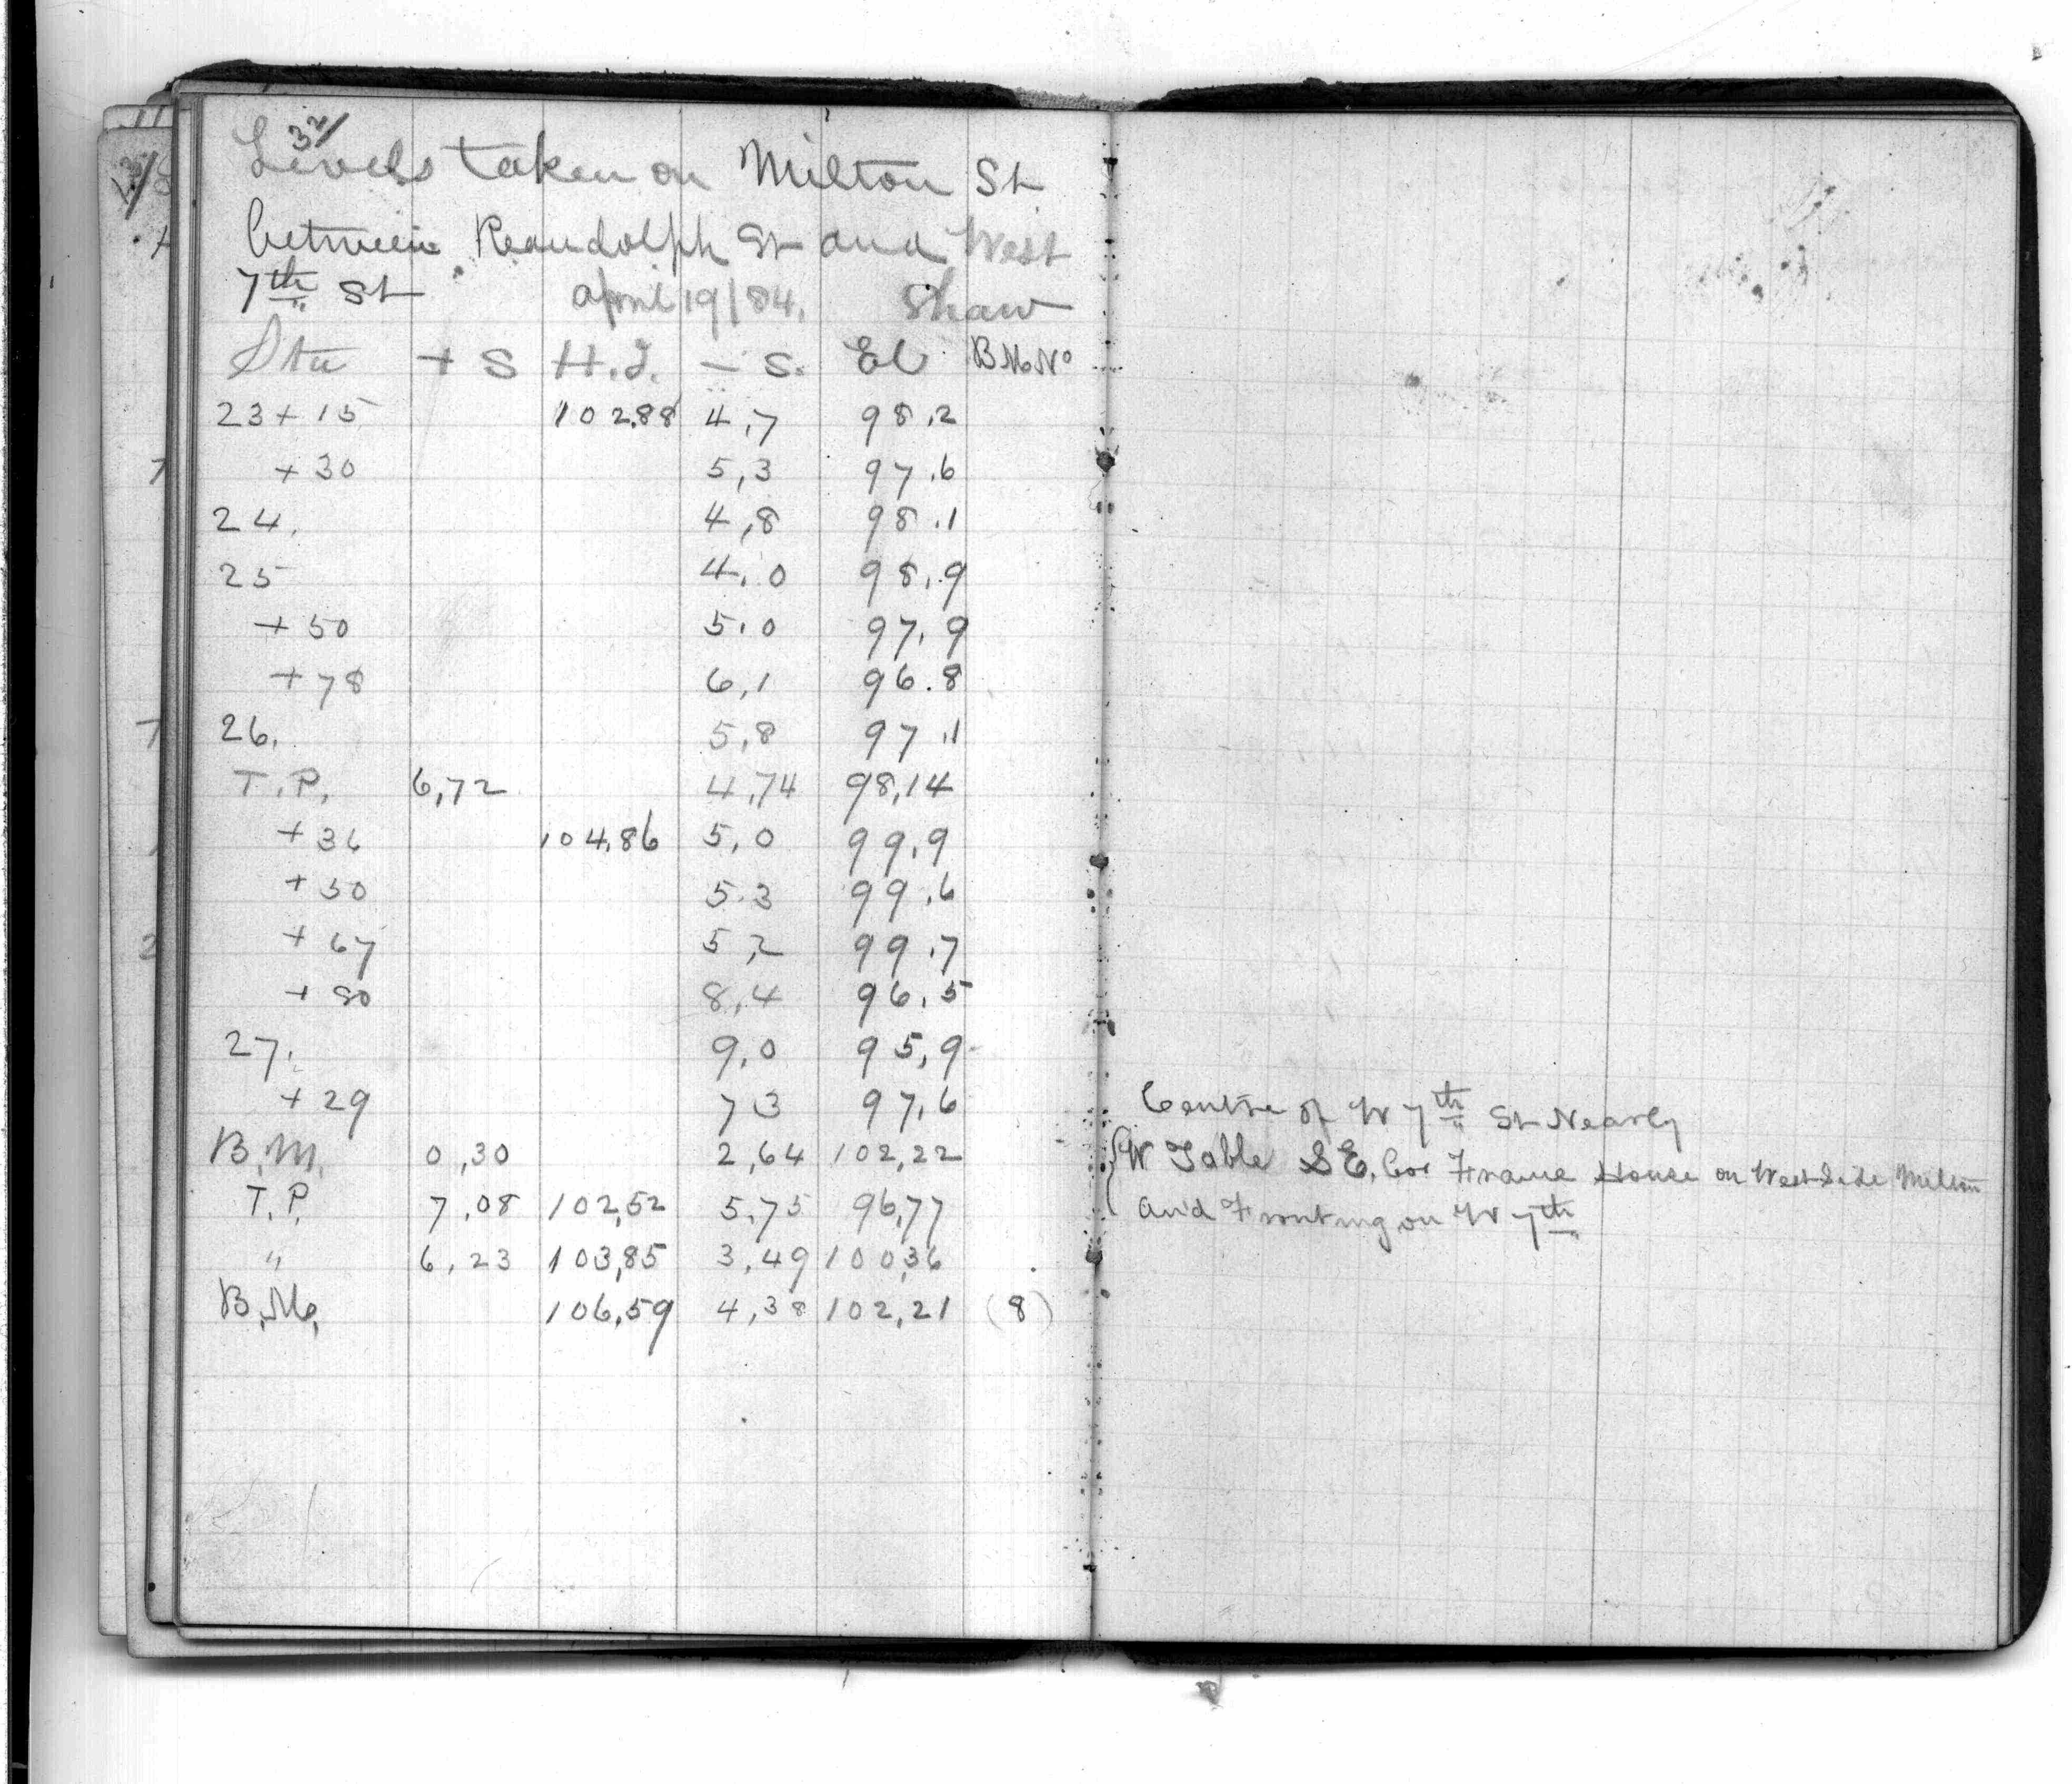 32/
Levels taken on Milton St
between Randolph St and West
7th St april 19/84. Shaw
Sta + S H.I. - S. El B.M. No
23+15 102.88 4,7 98.2
+30 5,3 97.6
24. 4,8 98.1
25 4.0 98.9
+50 5.0 97.9
+78 6,1 96.8
26. 5,8 97.1
T.P. 6,72 4,74 98,14
+36 104,86 5,0 99.9
+50 5.3 99.6
+67 5,2 99.7
+80 8,4 96.5
27. 9,0 95,9
+29 7 3 97,6 Centre of W 7th St Nearly
B.M. 0,30 2,64 102,22 W Table S E. Cor Frame House on West Side Milton
T.P. 7,08 102,52 5,75 96,77 and Fronting on W 7th
" 6,23 103,85 3,49 100,36
B.M. 106,59 4,38 102,21 (8)